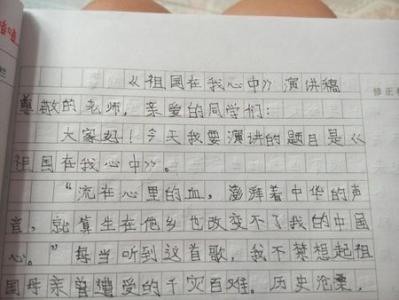 《祖国在我心中》演讲稿
尊敬的老师，亲爱的同学们：
大家好！今天我要演讲的题目是《
祖国在我心中》。
“流在心里的血，澎湃着中华的声
音，就算生在他乡也改变不了我的中国
心。”每当听到这首歌，我不禁想起祖
国母亲曾遭受的千灾百难。历史沧桑，